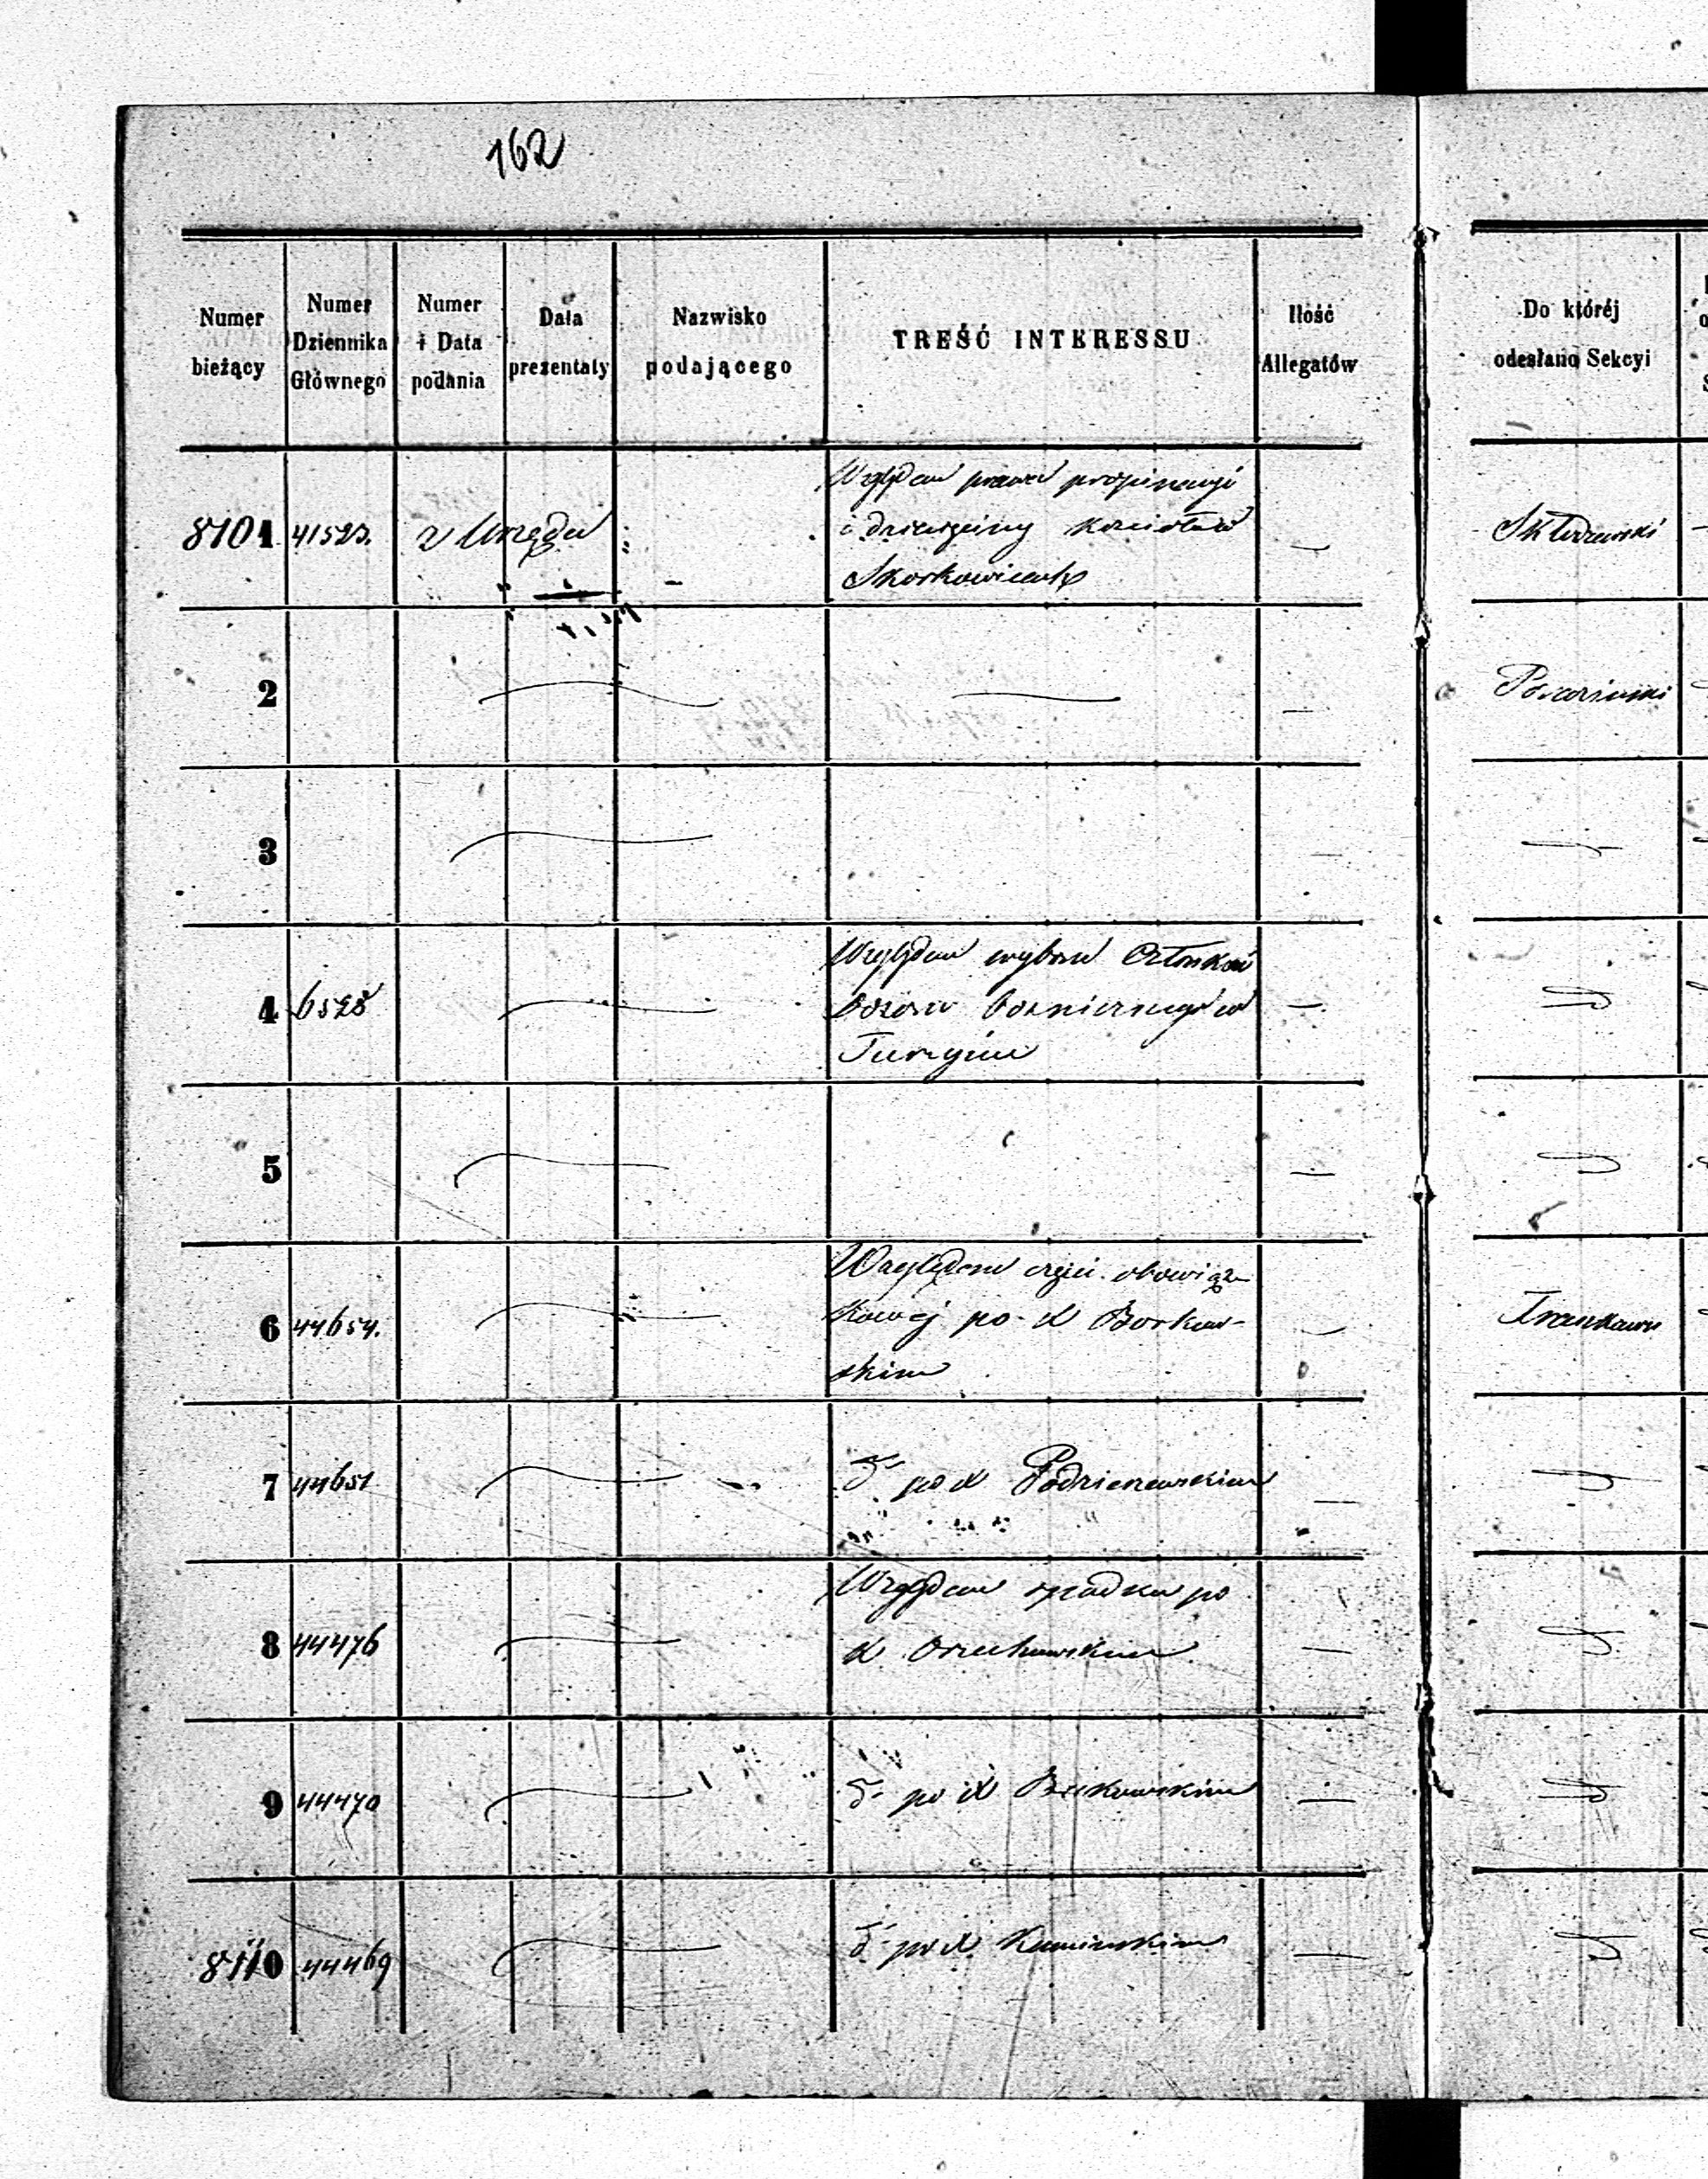 162
Numer bieżący
Numer Dziennika Głównego
Numer i Data podania
Data prezentaty
Nazwisko podającego
TREŚĆ INTERESSU
Ilość Allegatów
Do któréj odesłano Sekcyi
8101 41523. z Urzędu
Względem prawa propinacyi
i dziesięciny kościoła w
Skorkowicach
2
3
4 6528
Względem wyboru Członków
Dozoru Bóżniczego w
Tuszynie
5
6 44654.
Względem części obowiąz-
kowej po X Borkow-
skim
Frankowu
7 44651
d° po X
8 44476
Względem spadku po
X Orzechowskim
9 44470
d° po X
8110 44469
d° po X Kamińskim